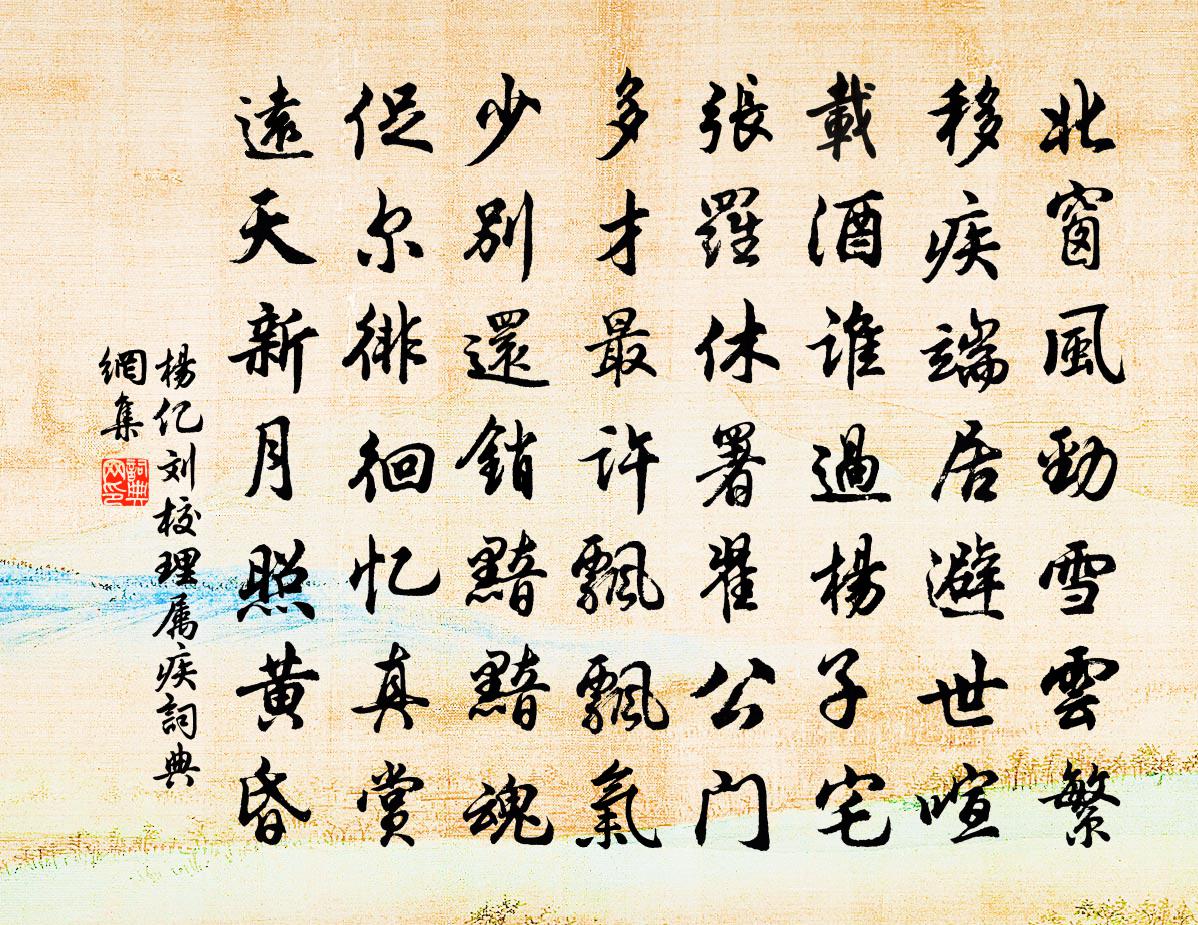 北窗風勁雪雲繁
移疾端居避世喧
載酒誰過楊子宅
張羅休署翟公门
多才最许飄飄氣
少別還銷黯黯魂
促尔徘徊忆真赏
遠天新月照黄昏
楊亿刘校理属疾詞典
網集
詞典网印